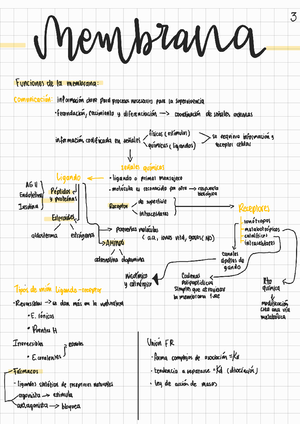 3
Membrana
Funciones de la membrana:
Comunicación: información clave para procesos necesarios para la supervivencia
• Fecundación, crecimiento y diferenciación → coordinación de señales externas
información codificada en señales
físicas (estímulos)
químicas (ligandos)
se requiere información y receptor celular
señales químicas
Ligando
• ligando o primer mensajero
• molécula es reconocida por otra → respuesta biológica
AG II
Endotelina
Insulina
Péptidos y proteínas
Receptor
de superficie
intracelulares
Esteroides
aldosterona
estrógeno
pequeñas moléculas
(a.a, iones, gases (NO)
Aminas
adrenalina dopamina
Receptores
ionotrópicos
metabotrópicos
catalíticos
intracelulares
nicotínico y
canales
de
Cadenas polipeptídicas
que atraviesan
la membrana
Rto químico
modificación
crea una vía
metabólica
Tipos de unión ligando-receptor
Reversibles → se dan más en la naturaleza
• E. iónicas
• Puentes H
Irreversibles
• E. covalentes
Fármacos
• ligandos sintéticos de receptores naturales
agonista → estimula
antagonista → bloquea
Unión FR
• forma complejos de asociación = Ka
• tendencia a separarse = Kd (disociación)
• ley de acción de masas